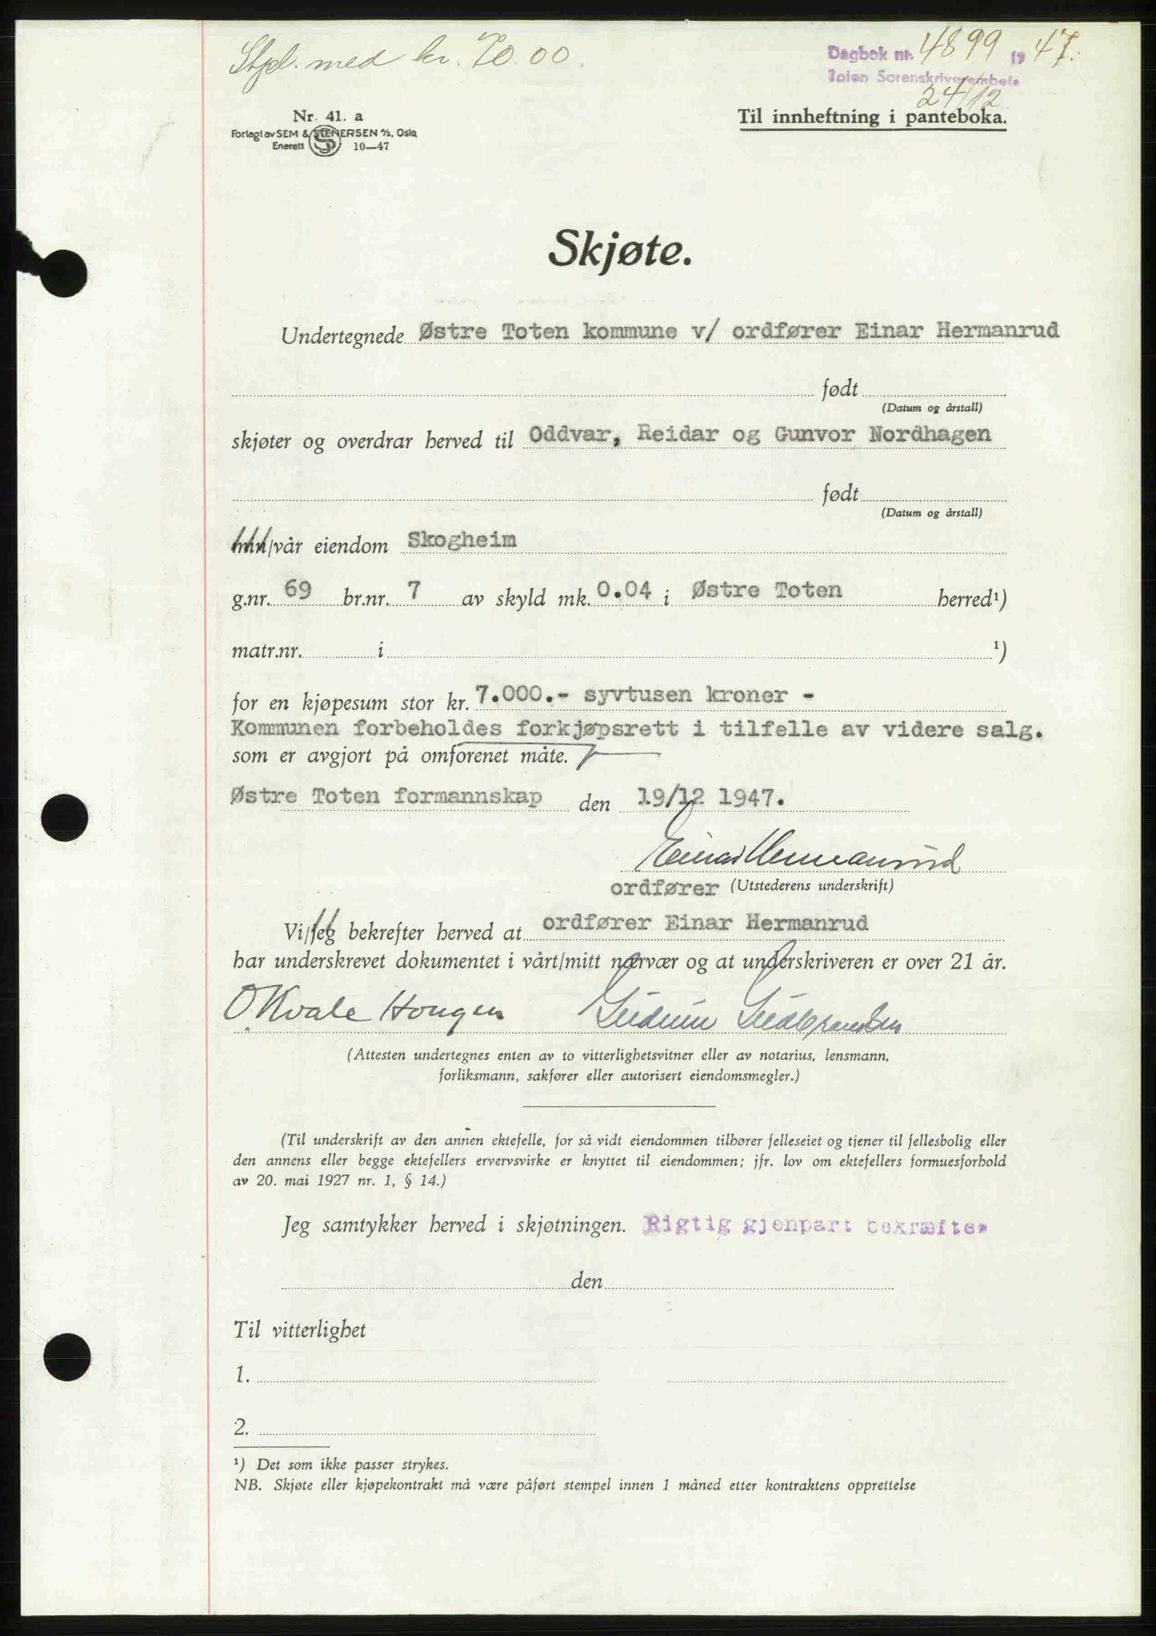 Stpl. med kr. 70.00.
Dagbok nr. 4899 1947.
Toten Sorenskriverembete
24/12
Nr. 41. a
Forlagt av SEM & STENERSEN A/S, Oslo
Enerett 10—47
Til innheftning i panteboka.
Skjøte.
Undertegnede Østre Toten kommune v/ ordfører Einar Hermanrud
født
(Datum og årstall)
skjøter og overdrar herved til Oddvar, Reidar og Gunvor Nordhagen
født
(Datum og årstall)
min/vår eiendom Skogheim
g.nr. 69 br.nr. 7 av skyld mk. 0.04 i Østre Toten herred¹)
matr.nr. i ¹)
for en kjøpesum stor kr. 7.000.- syvtusen kroner -
Kommunen forbeholdes forkjøpsrett i tilfelle av videre salg.
som er avgjort på omforenet måte.
Østre Toten formannskap den 19/12 1947.
Einar Hermanrud
ordfører (Utstederens underskrift)
Vi/jeg bekrefter herved at ordfører Einar Hermanrud
har underskrevet dokumentet i vårt/mitt nærvær og at underskriveren er over 21 år.
O. Kvale Hougen Gudrun
(Attesten undertegnes enten av to vitterlighetsvitner eller av notarius, lensmann,
forliksmann, sakfører eller autorisert eiendomsmegler.)
(Til underskrift av den annen ektefelle, for så vidt eiendommen tilhører felleseiet og tjener til fellesbolig eller
den annens eller begge ektefellers ervervsvirke er knyttet til eiendommen; jfr. lov om ektefellers formuesforhold
av 20. mai 1927 nr. 1, § 14.)
Jeg samtykker herved i skjøtningen. Rigtig gjenpart bekræftes
den
Til vitterlighet
1.
2.
¹) Det som ikke passer strykes.
NB. Skjøte eller kjøpekontrakt må være påført stempel innen 1 måned etter kontraktens opprettelse